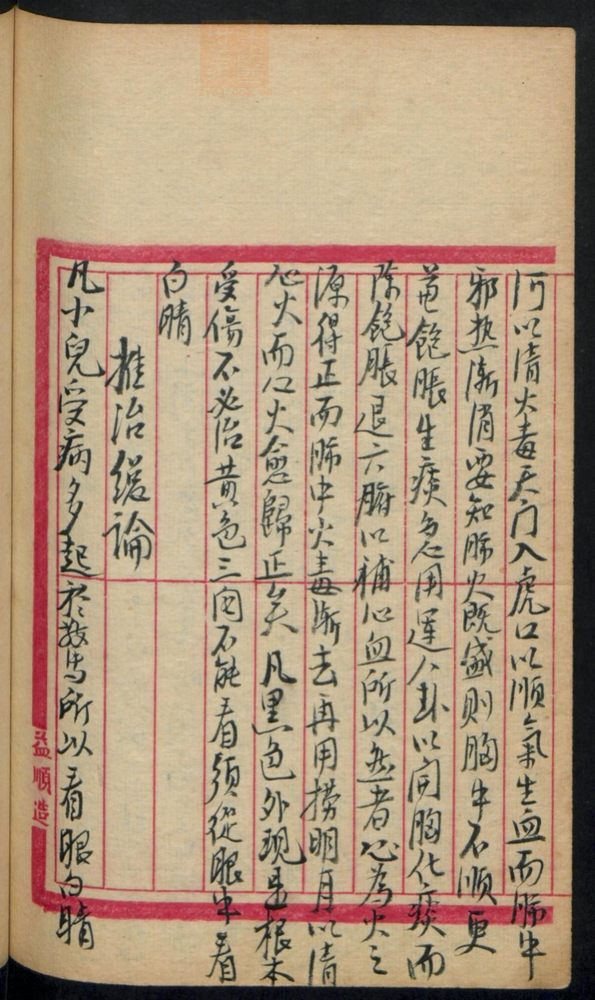 河以清火毒天门入虎口以順氣生血而肺中
邪热漸消要知肺火既盛则胸中不順更
葍飽脹生痰急用運八卦以開胸化痰而
除飽脹退六腑以補心血所以然者心為火之
源得正而肺中火毒漸去再用撈明月以清
心火而心火愈歸正矣凡黑色外现是根本
受傷不必治黄色三関不能看須從眼中看
白睛
推治總論
凡小兒受病多起於驚所以看眼白睛
益順造